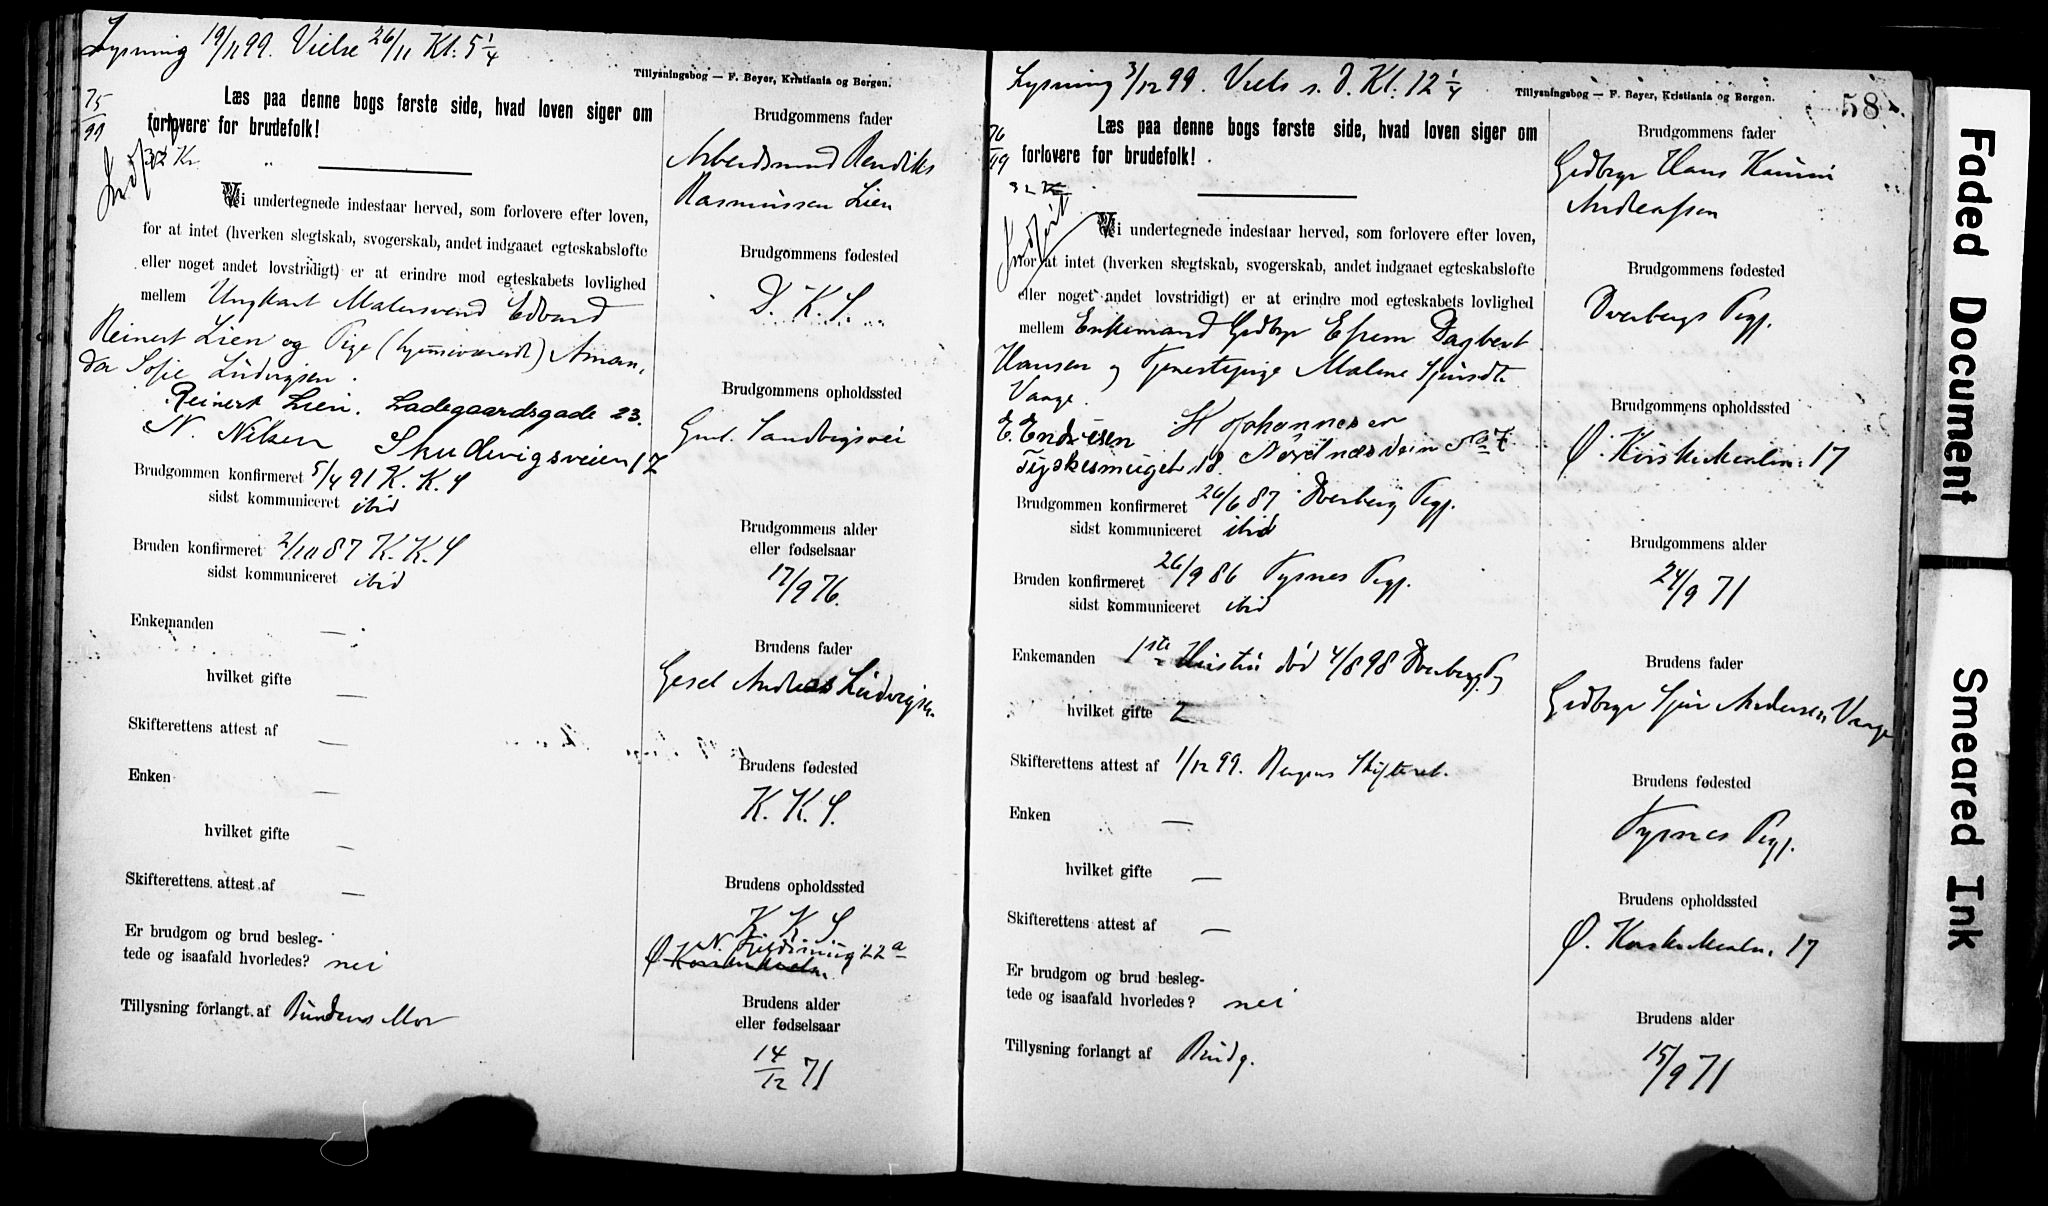 Lysning 19/11 99. Vielse 26/11 Kl: 5 1/4
Tillysningsbog — F. Beyer, Kristiania og Bergen.
75/99
Læs paa denne bogs første side, hvad loven siger om
forlovere for brudefolk!
32 Kr.
Vi undertegnede indestaar herved, som forlovere efter loven,
for at intet (hverken slegtskab, svogerskab, andet indgaaet egteskabsløfte
eller noget andet lovstridigt) er at erindre mod egteskabets lovlighed
mellem Ungkarl Malersvend Edvard
Reinert Lien og Pige (hjemmeværende) Aman-
da Sofie Ludvigsen.
Reinert Lien. Ladegaardsgade 23.
N. Nilsen Skudevigsveien 17
Brudgommen konfirmeret 5/4 91 K. K. S
sidst kommuniceret ibid
Bruden konfirmeret 2/10 87 K. K. S
sidst kommuniceret ibid
Enkemanden —
hvilket gifte —
Skifterettens attest af —
Enken —
hvilket gifte —
Skifterettens attest af —
Er brudgom og brud besleg-
tede og isaafald hvorledes? nei
Tillysning forlangt af Brudens Mor
Brudgommens fader
Arbeidsmand Bendiks
Rasmussen Lien
Brudgommens fødested
D. K. S.
Brudgommens opholdssted
Sandvigsvei
Brudgommens alder
eller fødselsaar
17/9 76.
Brudens fader
Gesel Andreas Ludvigsen
Brudens fødested
K. K. S.
Brudens opholdssted
K K S
N. 22a
Ø.
Brudens alder
eller fødselsaar
14/12 71
Lysning 3/12 99. Viels s. D. Kl: 12 1/4
Tillysningsbog — F. Beyer, Kristiania og Bergen.
58
76/99
Læs paa denne bogs første side, hvad loven siger om
forlovere for brudefolk!
32 Kr
Indført
Vi undertegnede indestaar herved, som forlovere efter loven,
for at intet (hverken slegtskab, svogerskab, andet indgaaet egteskabsløfte
eller noget andet lovstridigt) er at erindre mod egteskabets lovlighed
mellem Enkemand Gedbgr Efrem Dagbert
Hansen og Tjenestepige Malene Sjursdt.
Vaage.
E. Endresen H Johannesen
Tyskesmuget 18. Nordnæsvein No 7
Brudgommen konfirmeret 26/6 87 Dverberg Pgj.
sidst kommuniceret ibid
Bruden konfirmeret 26/9 86 Tysnes Pgj.
sidst kommuniceret ibid
Enkemanden 1ste Hustru død 4/8 98 Dverberg Pgj
hvilket gifte 2
Skifterettens attest af 1/12 99. Bergens Skifteret.
Enken —
hvilket gifte —
Skifterettens attest af —
Er brudgom og brud besleg-
tede og isaafald hvorledes? nei
Tillysning forlangt af Brudg.
Brudgommens fader
Gedbgr Hans
Andreassen
Brudgommens fødested
Dverbergs Pgj.
Brudgommens opholdssted
Ø. Korskirkealm. 17
Brudgommens alder
24/9 71
Brudens fader
Gedbgr Sjur Andersen Vaage
Brudens fødested
Tysnes Pgj.
Brudens opholdssted
Ø. Korskirkealm. 17
Brudens alder
15/9 71
Faded Document
Smeared Ink